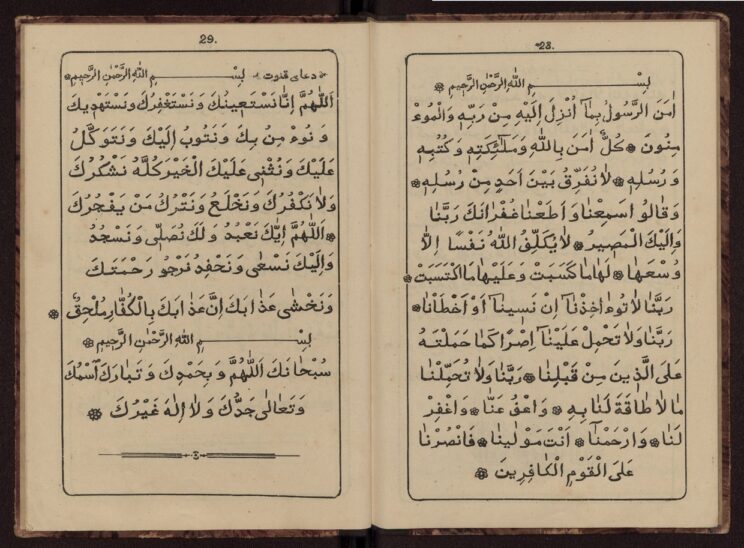 28.
بِسْــــــمِ اللّٰهِ الرَّحْمٰنِ الرَّحٖيمِ ۞
اٰمَنَ الرَّسُولُ بِمَٓا اُنْزِلَ اِلَيْهِ مِنْ رَبِّهٖ وَالْمُوءْ
مِنُونَ ۞ كُلٌّ اٰمَنَ بِاللّٰهِ وَمَلٰٓئِكَتِهٖ وَكُتُبِهٖ
وَرُسُلِهٖ ۞ لَانُفَرِّقُ بَيْنَ اَحَدٍ مِنْ رُسُلِهٖ ۞
وَقَالُو اسَمِعْنَا وَاَطَعْنَا غُفْرَانَكَ رَبَّنَا
وَاِلَيْكَ الْمَصِيرُ ۞ لَايُكَلِّفُ اللّٰهُ نَفْسًا اِلَّا
وُسْعَهَا ۞ لَهَا مَا كَسَبَتْ وَعَلَيْهَا مَا اكْتَسَبَتْ ۞
رَبَّنَا لَا تُوءَاخِذْنَٓا اِنْ نَسِينَٓا اَوْ اَخْطَاْنَا ۞
رَبَّنَا وَلَا تَحْمِلْ عَلَيْنَٓا اِصْرًا كَمَا حَمَلْتَهُ
عَلَى الَّذِينَ مِنْ قَبْلِنَا ۞ رَبَّنَا وَلَا تُحَمِّلْنَا
مَا لَا طَاقَةَ لَنَا بِهِ ۞ وَاعْفُ عَنَّا ۞ وَاغْفِرْ
لَنَا ۞ وَارْحَمْنَا ۞ اَنْتَ مَوْلٰينَا ۞ فَانْصُرْنَا
عَلَى الْقَوْمِ الْكَافِرِينَ ۞
29.
دعاى قنوت بِسْــــــمِ اللّٰهِ الرَّحْمٰنِ الرَّحٖيمِ ۞
اَللّٰهُمَّ اِنَّا نَسْتَعِينُكَ وَنَسْتَغْفِرُكَ وَنَسْتَهْدِيكَ
وَ نُوءْ مِنُ بِكَ وَنَتُوبُ اِلَيْكَ وَنَتَوَكَّلُ
عَلَيْكَ وَنُثْنِى عَلَيْكَ الْخَيْرَ كُلَّهُ نَشْكُرُكَ
وَلَا نَكْفُرُكَ وَنَخْلَعُ وَنَتْرُكُ مَنْ يَفْجُرُكَ
۞ اَللّٰهُمَّ اِيَّكَ نَعْبُدُ وَ لَكَ نُصَلِّى وَنَسْجُدُ
وَاِلَيْكَ نَسْعٰى وَنَحْفِدُ نَرْجُو رَحْمَتَكَ
وَنَخْشٰى عَذَابَكَ اِنَّ عَذَابَكَ بِالْكُفَّارِ مُلْحِقٌ ۞
بِسْــــــمِ اللّٰهِ الرَّحْمٰنِ الرَّحٖيمِ ۞
سُبْحَانَكَ اَللّٰهُمَّ وَبِحَمْدِكَ وَتَبَارَكَ اسْمُكَ
وَتَعَالٰى جَدُّكَ وَلَا اِلٰهَ غَيْرُكَ ۞